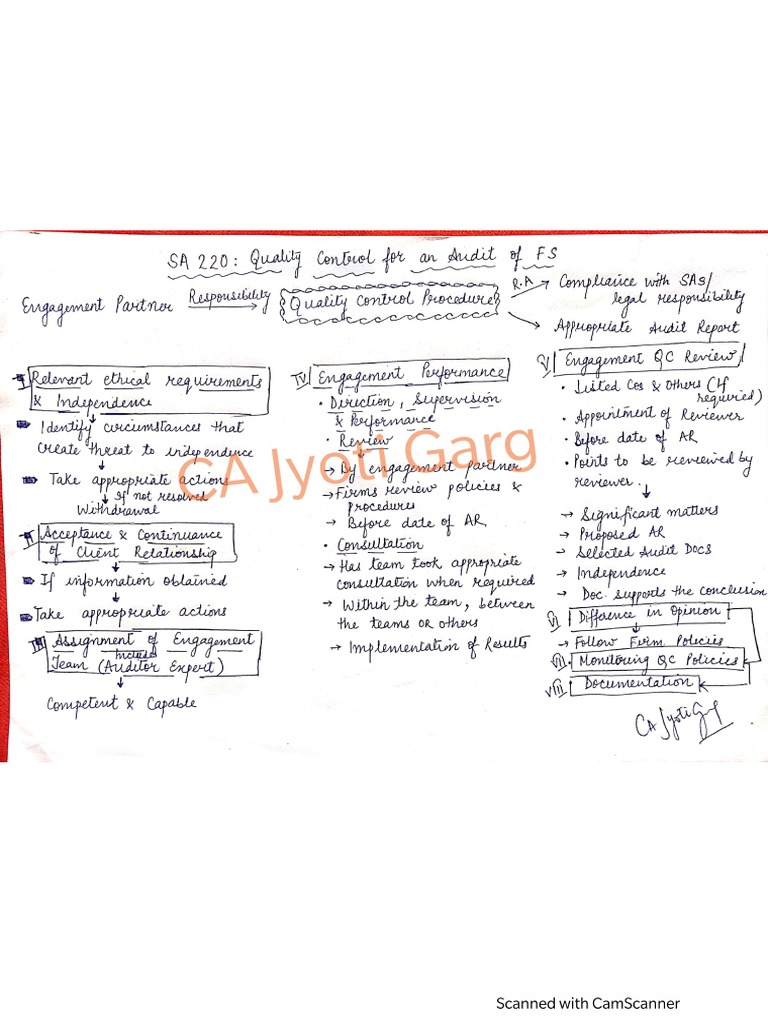 SA 220: Quality Control for an Audit of FS
Engagement Partner Responsibility Quality Control Procedure R.A Compliance with SAs/
legal responsibility
Appropriate Audit Report
I Relevant ethical requirements
& Independence
Identify circumstances that
create threat to independence
Take appropriate actions
If not resolved
Withdrawal
II Acceptance & Continuance
of Client Relationship
If information obtained
Take appropriate actions
III Assignment of Engagement
Team (Auditor Expert)
Includes
Competent & Capable
IV Engagement Performance
• Direction, Supervision
& Performance
• Review
→ By engagement partner
→ Firms review policies &
procedures
→ Before date of AR
• Consultation
→ Has team took appropriate
consultation when required
→ Within the team, between
the teams or others
→ Implementation of Results
V Engagement QC Review
• Listed Cos & Others (If
required)
• Appointment of Reviewer
• Before date of AR
• Points to be reviewed by
reviewer.
→ Significant matters
→ Proposed AR
→ Selected Audit Docs
→ Independence
→ Doc supports the conclusion
VI Diffaence in Opinion
→ Follow Firm Policies
VII Monitoring QC Policies
VIII Documentation
CA Jyoti Garg
CA Jyoti Garg
Scanned with CamScanner